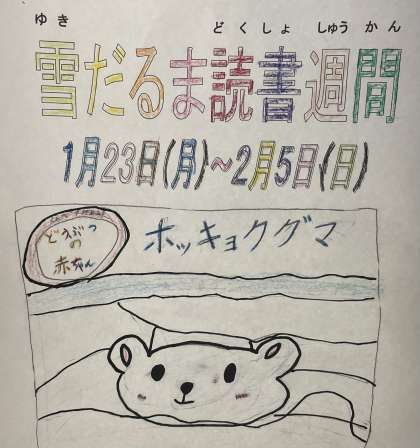 ゆき どくしょ しゅうかん
雪だるま読書週間
1月23日(月)~2月5日(日)
どうぶつ
の
赤ちゃん
ホッキョクグマ